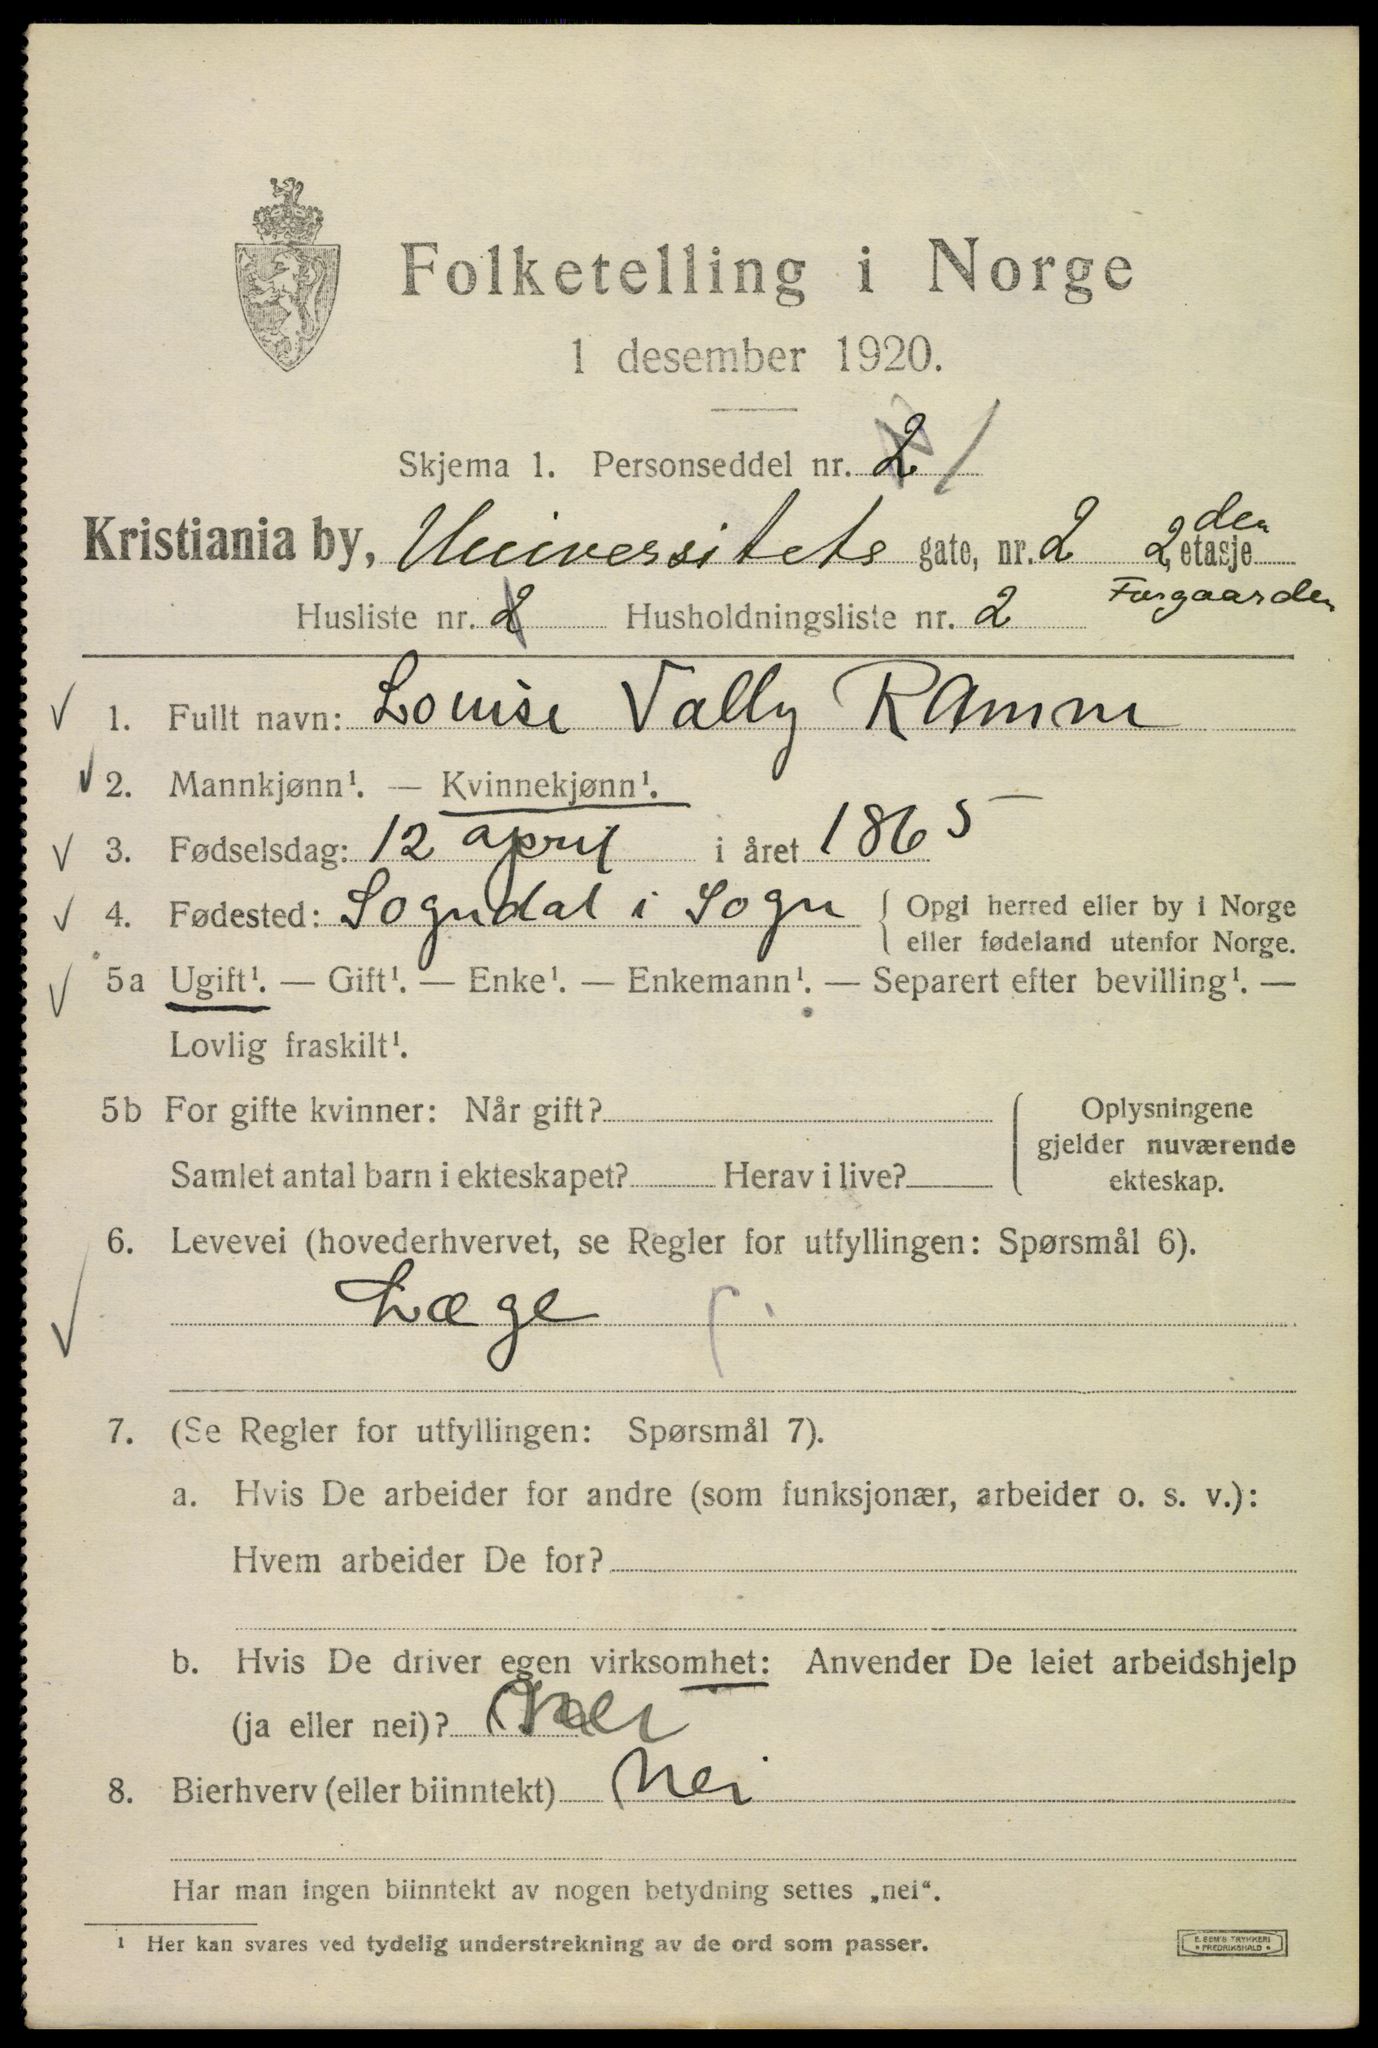 Folketelling i Norge
1 desember 1920.
Skjema 1. Personseddel nr. 2 1
Kristiania by, Universitets gate, nr. 2 2den etasje
Husliste nr. 2 Husholdningsliste nr. 2 Forgaarden
1. Fullt navn: Louise Vally Ramm
2. Mannkjønn¹. — Kvinnekjønn¹.
3. Fødselsdag: 12 april i året 1865
4. Fødested: Sogndal i Sogn { Opgi herred eller by i Norge
eller fødeland utenfor Norge.
5a Ugift¹. — Gift¹. — Enke¹. — Enkemann¹. — Separert efter bevilling¹. —
Lovlig fraskilt¹.
5b For gifte kvinner: Når gift? Oplysningene
gjelder nuværende
Samlet antal barn i ekteskapet? Herav i live? ekteskap.
6. Levevei (hovederhvervet, se Regler for utfyllingen: Spørsmål 6).
Læge
7. (Se Regler for utfyllingen: Spørsmål 7).
a. Hvis De arbeider for andre (som funksjonær, arbeider o. s. v.):
Hvem arbeider De for?
b. Hvis De driver egen virksomhet: Anvender De leiet arbeidshjelp
(ja eller nei)? Nei
8. Bierhverv (eller biinntekt) Nei
Har man ingen biinntekt av nogen betydning settes „nei“.
¹ Her kan svares ved tydelig understrekning av de ord som passer.
E. SEM'S TRYKKERI
FREDRIKSHALD